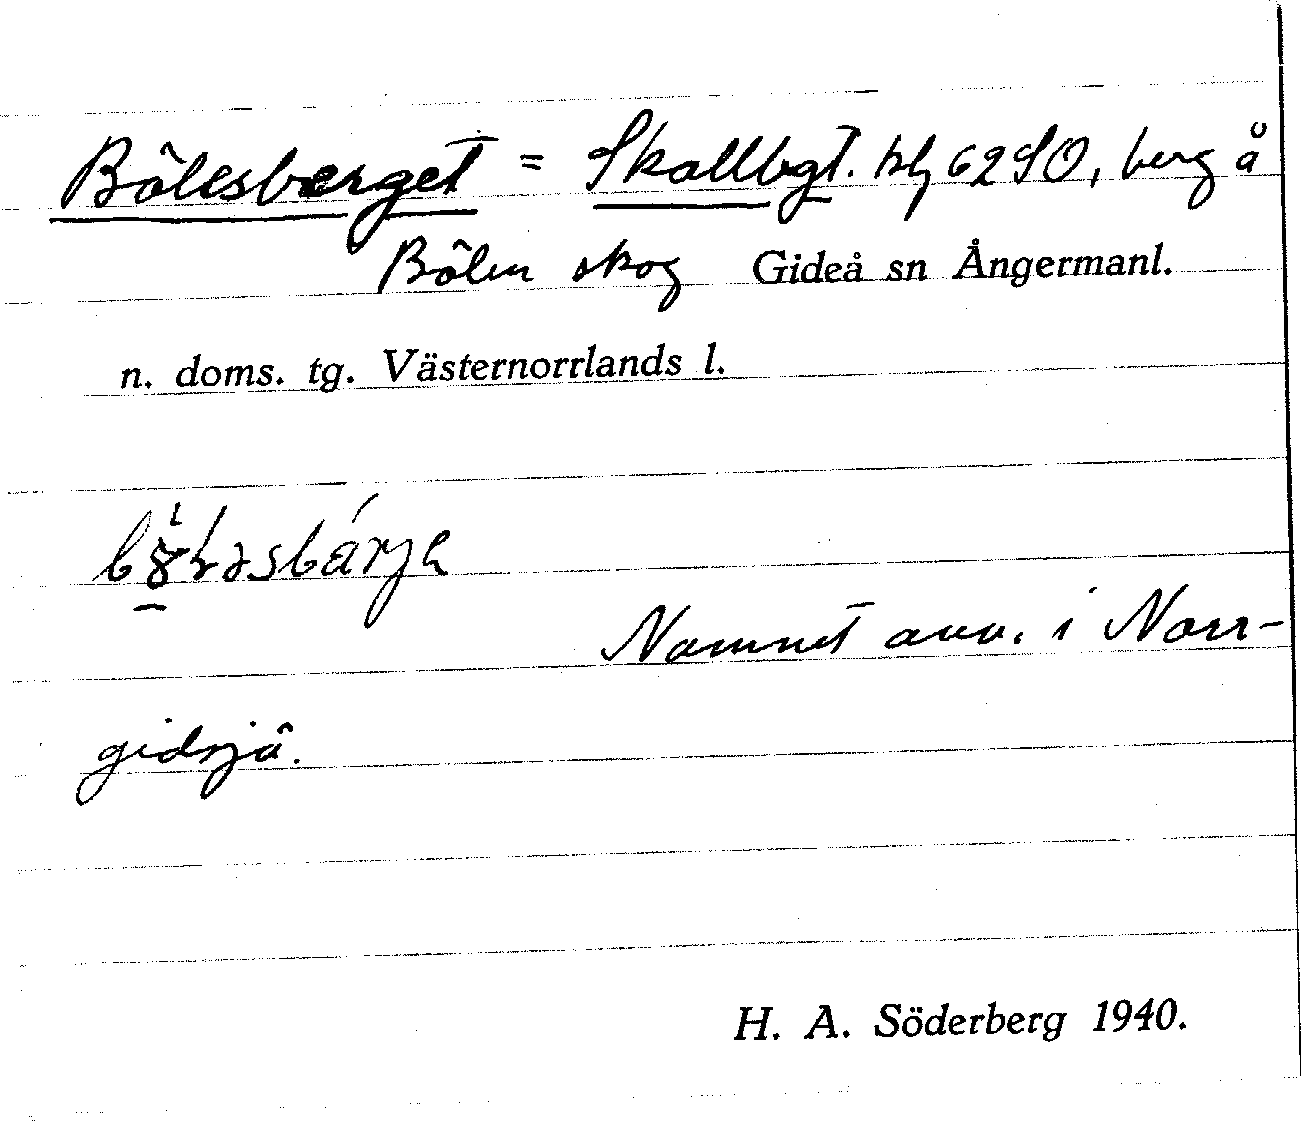 Bölesberget = Skallbgt. bl 62SO, berg å
Bölen skog Gideå sn Ångermanl.
n. doms. tg. Västernorrlands l.
Namnet anv. i Norr-
gidsjö.
H. A. Söderberg 1940.